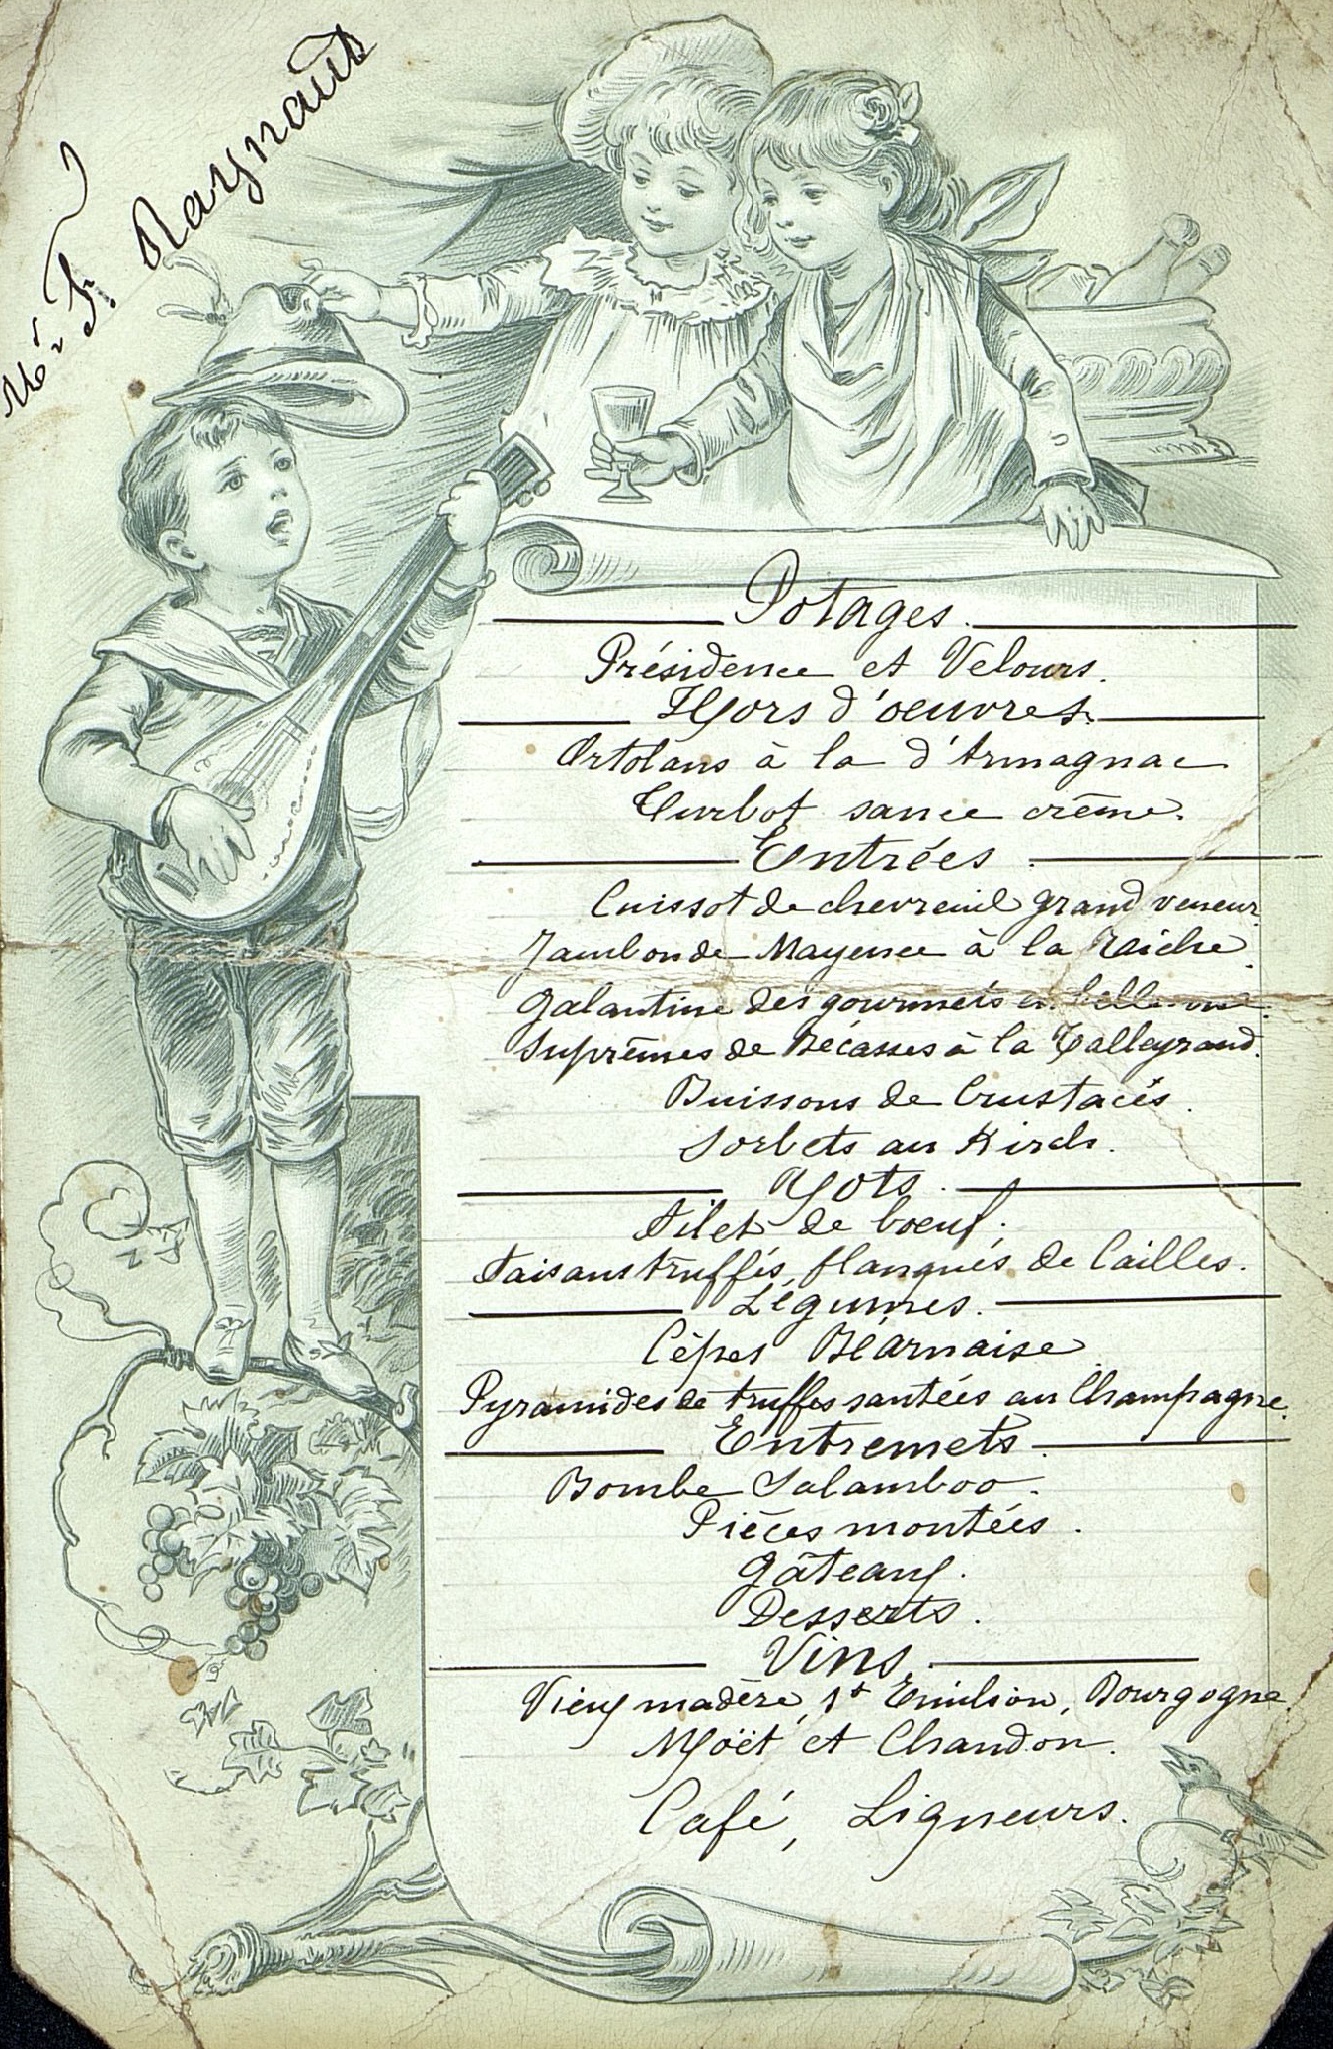 Mr F. Raynaud
Potages.
Présidence et Velours.
Hors d'oeuvres.
Ortolans à la d'Armagnac
Turbot sauce crême.
Entrées.
Cuissot de chevreuil grand veneur.
Jambon de Mayence à la
Galantine des gourmets en belle-vue.
Suprêmes de Bécasses à la Talleyrand.
Buissons de Crustacés.
Sorbets au Kirch.
Rots.
Filet de boeuf.
Faisans truffés, flanqués de Cailles.
Légumes.
Cèpes Béarnaise.
Pyramides de truffes sautées au Champagne.
Entremets.
Bombe Salamboo.
Pièces montées.
Gâteaux.
Desserts.
Vins.
Vieux madère, St Emilion, Bourgogne.
Moët et Chandon.
Café, Liqueurs.